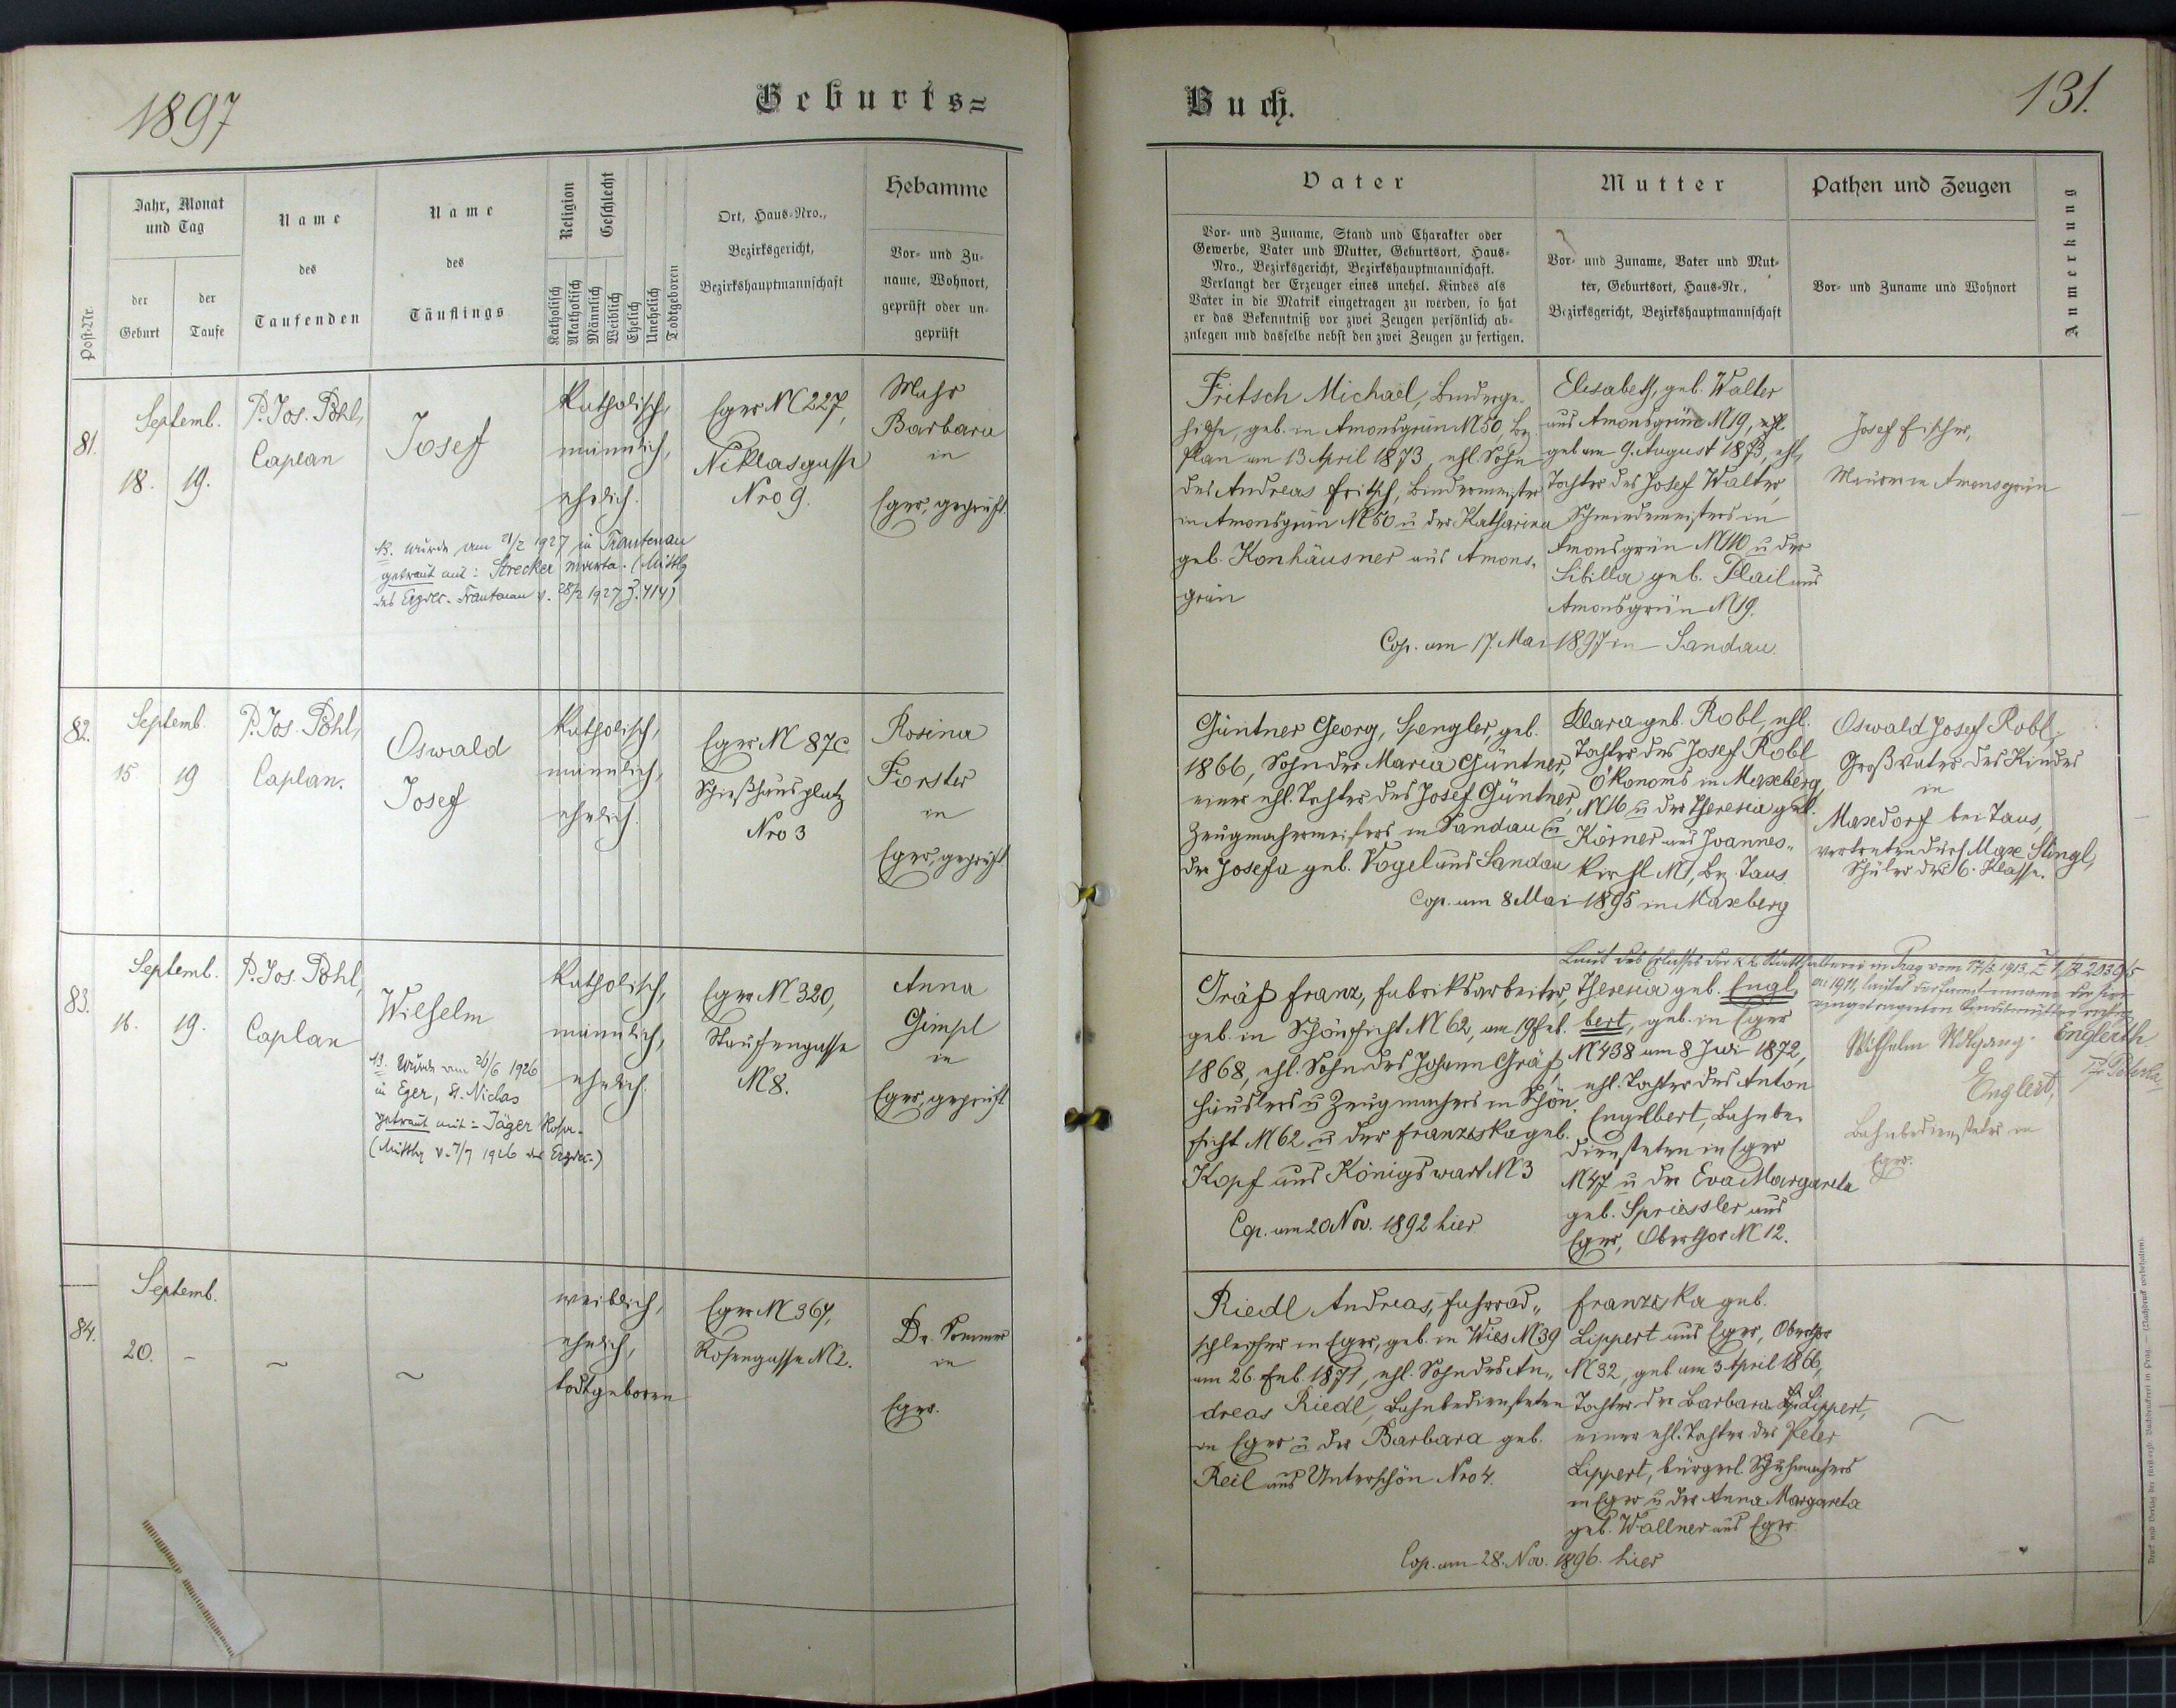 1897
Geburts=
Post-Nr.
Jahr, Monat
und Tag
der
Geburt
der
Taufe
Name
des
Taufenden
Name
des
Täuflings
Religion
Geschlecht
Katholisch
Akatholisch
Männlich
Weiblich
Ehelich
Unehelich
Todtgeboren
Ort, Haus-Nro.,
Bezirksgericht,
Bezirkshauptmannschaft
Hebamme
Vor- und Zu-
name, Wohnort,
geprüft oder un-
geprüft
81.
Septemb.
18. 19.
P. Jos. Pohl,
Caplan
Josef
Katholisch,
männlich,
ehelich.
Eger N 227,
Niklasgasse
Nro 9.
Barbara
in
Eger, geprüft.
N. wurde am 21/2 1927 in Trautenau
getraut mit: Strecker (Mittlg
des Erzdec. Trautenau v. 28/2 1927 Z. 414)
82.
Septemb.
15. 19
P. Jos. Pohl,
Caplan.
Oswald
Josef
Katholisch,
männlich,
ehelich.
Eger N 87c
Schießhausplatz
Nro 3
Rosina
Forster
in
Eger, geprüft
83.
Septemb.
16. 19.
P. Jos. Pohl,
Caplan
Wilhelm
Katholisch,
männlich,
ehelich.
Eger N 320,
Staufengasse
N 8.
Anna
Gimpl
in
Eger, geprüft
N. Wurde am 26/6 1926
in Eger, St. Niclas
getraut mit: Jäger Rosa.
(Mittlg v. 7/7 1926 des Erzdec.)
84.
Septemb.
20. -
~
~
weiblich,
ehelich,
todtgeboren
Eger N 364,
Rosengasse N 2.
Dr. Sommer
in
Eger.
Buch.
131.
Vater
Vor- und Zuname, Stand und Charakter oder
Gewerbe, Vater und Mutter, Geburtsort, Haus-
Nro., Bezirksgericht, Bezirkshauptmannschaft.
Verlangt der Erzeuger eines unehel. Kindes als
Vater in die Matrik eingetragen zu werden, so hat
er das Bekenntniß vor zwei Zeugen persönlich ab-
zulegen und dasselbe nebst den zwei Zeugen zu fertigen.
Mutter
Vor- und Zuname, Vater und Mut-
ter, Geburtsort, Haus-Nr.,
Bezirksgericht, Bezirkshauptmannschaft
Pathen und Zeugen
Vor- und Zuname und Wohnort
Anmerkung
Fritsch Michael, Binderge-
hilfe, geb. in Amonsgrün N 50, Bez.
Plan am 13 April 1873, ehl. Sohn
des Andreas Fritsch, Bindermeister
in Amonsgrün N 50 u der Katharina
geb. Konhäusner aus Amons-
grün
Elisabeth, geb. Walter
aus Amonsgrün N 19,
geb am 9. August 1873, ehl.
Tochter des Josef Walter,
Schmiedemeisters in
Amonsgrün N 110 u der
Sibilla geb. Plail aus
Amonsgrün N 19.
Cop. am 17. Mai 1897 in Sandau.
Josef Fischer,
Maurer in Amonsgrün
Güntner Georg, Spengler, geb.
1866, Sohn der Maria Güntner,
einer ehl. Tochter des Josef Güntner,
Zeugmachermeisters in Sandau u
der Josefa geb. Vogel aus Sandau
Klara geb. Robl, ehl.
Tochter des Josef Robl
Ökonoms in Maxberg
N 16 u der Theresia geb.
Körner aus Joannes-
kirchl N 1, Bz. Taus
Cop. am 8 Mai 1895 in Maxberg
Oswald Josef Robl,
Großvater des Kindes
in
Maxdorf bei Taus,
vertreten durch Max Stingl,
Schüler der 6. Klasse.
Laut des Erlasses der k.k. Statthalterei in Prag vom 17/3. 1913, Z
ai 1911, lautet der Familienname der hier
eingetragenen Kindesmutter richtig
Englerth.
Gräf Franz, Fabriksarbeiter,
geb. in Schönficht N 62, am 19 Feb.
1868, ehl. Sohn des Johann Gräf,
Häuslers u Zeugmachers in Schön-
ficht N 62 u der Franziska geb.
Kopf aus Königswart N 3
Cop. am 20 Nov. 1892 hier
Theresia geb. Engl-
bert, geb. in Eger
N 438 am 8 Juni 1872,
ehl. Tochter des Anton
Engelbert, Bahnbe-
diensteten in Eger
N 47 u der Eva Margareta
geb. Spriessler aus
Eger, Oberthor N 12.
Wilhelm Wolfgang
Englert,
Bahnbediensteter in
Eger.
Riedl Andreas, Fahrrad-
schleifer in Eger, geb. in Wies N 39
am 26. Feb. 1871, ehl. Sohn des An-
dreas Riedl, Bahnbediensteten
in Eger u der Barbara geb.
Reil aus Unterschön Nro 4.
Franziska geb.
Lippert aus Eger, Oberthor
N 32, geb am 3 April 1866,
Tochter der Barbara Lippert,
einer ehl. Tochter des Peter
Lippert, bürgerl. Schuhmachers
in Eger u der Anna Margareta
geb. Wallner aus Eger.
Cop. am 28. Nov. 1896. hier
~
Druck und Verlag der fürst-erzb. Buchdruckerei in Prag. — (Nachdruck vorbehalten).